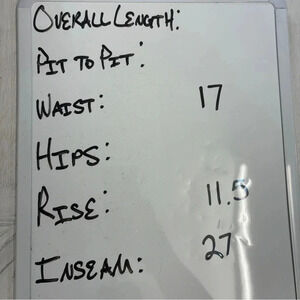 OVERALL LENGTH:
PIT TO PIT:
WAIST: 17
HIPS:
RISE: 11.5
INSEAM: 27